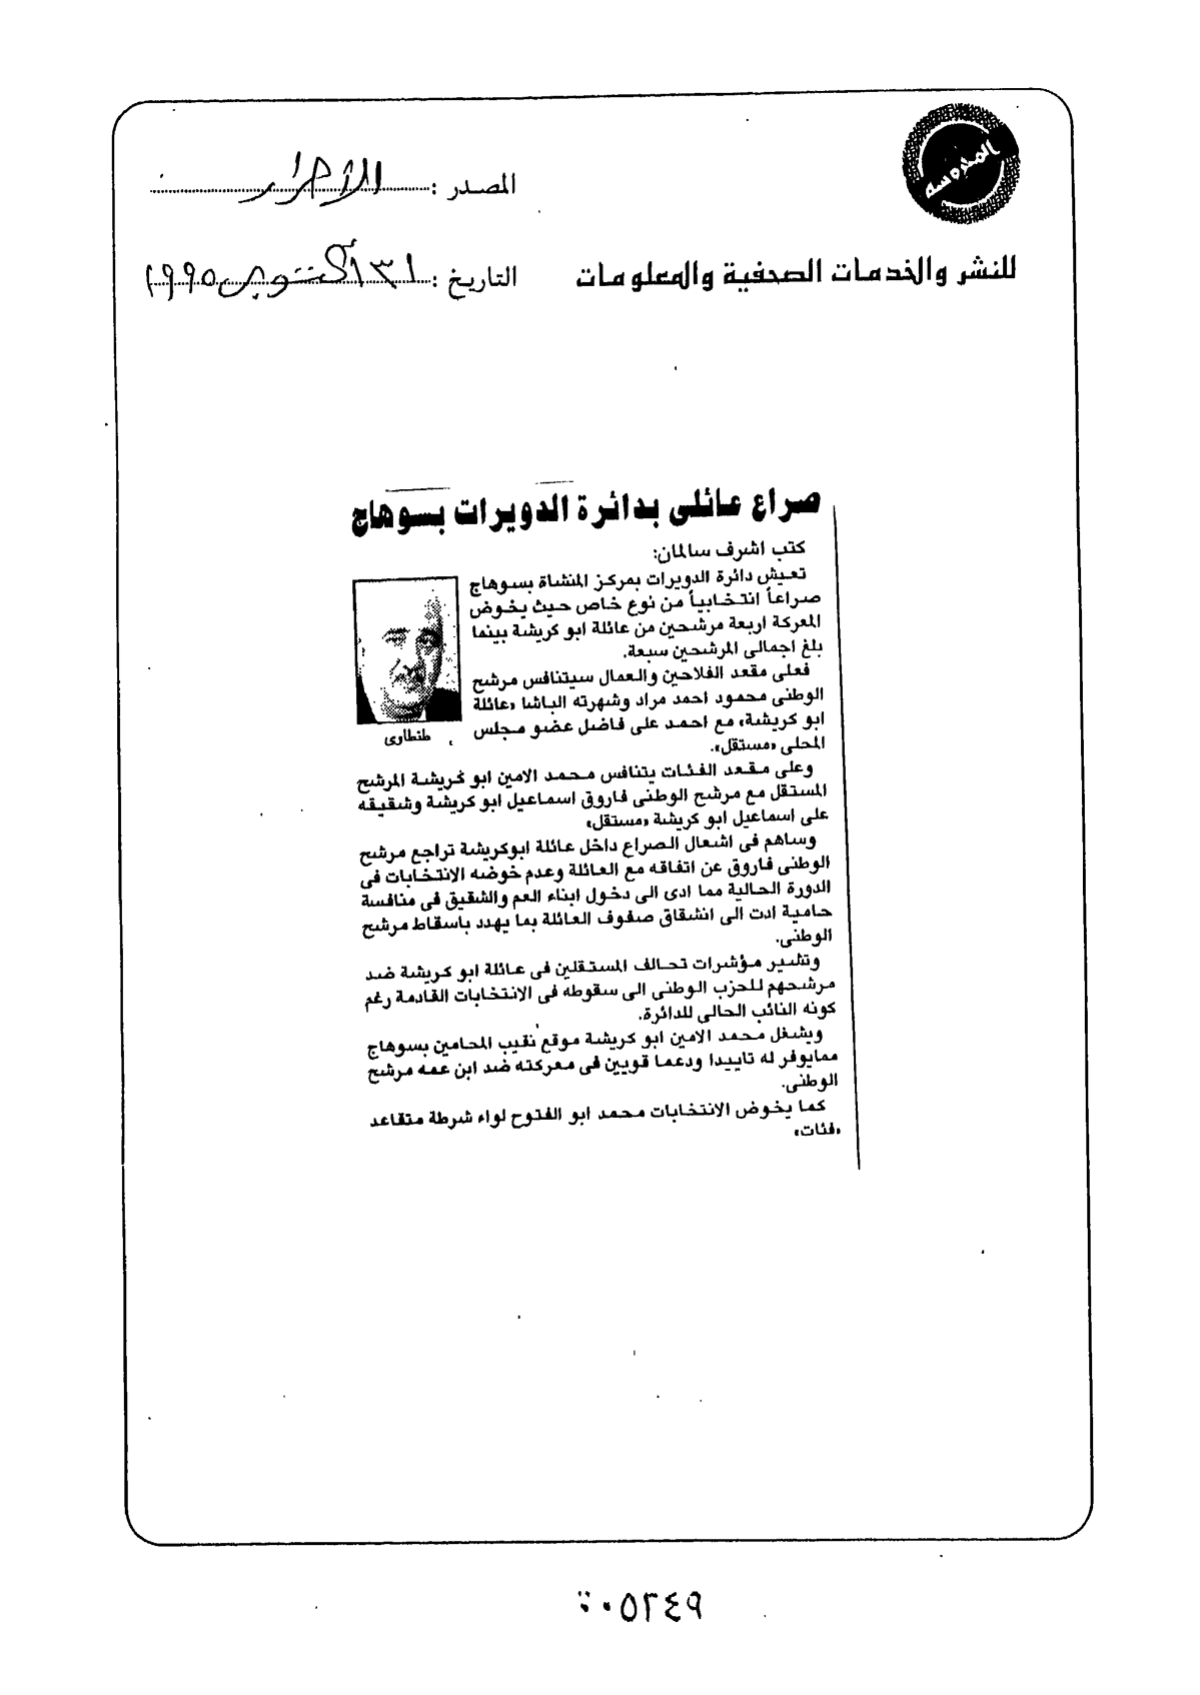 المحروسة
المصدر : الأحرار
للنشر والخدمات الصحفية والمعلومات
التاريخ : ٣١ أكتوبر ١٩٩٥
صراع عائلى بدائرة الدويرات بسوهاج
كتب اشرف سالمان:
تعيش دائرة الدويرات بمركز المنشاة بسوهاج
صراعاً انتخابياً من نوع خاص حيث يخوض
المعركة اربعة مرشحين من عائلة ابو كريشة بينما
بلغ اجمالى المرشحين سبعة.
فعلى مقعد الفلاحين والعمال سيتنافس مرشح
الوطنى محمود احمد مراد وشهرته الباشا «عائلة
ابو كريشة» مع احمد على فاضل عضو مجلس
المحلى «مستقل».
طنطاوى
وعلى مقعد الفئات يتنافس محمد الامين ابو كريشة المرشح
المستقل مع مرشح الوطنى فاروق اسماعيل ابو كريشة وشقيقه
على اسماعيل ابو كريشة «مستقل»
وساهم فى اشعال الصراع داخل عائلة ابوكريشة تراجع مرشح
الوطنى فاروق عن اتفاقه مع العائلة وعدم خوضه الانتخابات فى
الدورة الحالية مما ادى الى دخول ابناء العم والشقيق فى منافسة
حامية ادت الى انشقاق صفوف العائلة بما يهدد باسقاط مرشح
الوطنى.
وتشير مؤشرات تحالف المستقلين فى عائلة ابو كريشة ضد
مرشحهم للحزب الوطنى الى سقوطه فى الانتخابات القادمة رغم
كونه النائب الحالى للدائرة.
ويشغل محمد الامين ابو كريشة موقع نقيب المحامين بسوهاج
ممايوفر له تاييدا ودعما قويين فى معركته ضد ابن عمه مرشح
الوطنى.
كما يخوض الانتخابات محمد ابو الفتوح لواء شرطة متقاعد
«فئات»
٠٥٢٤٩